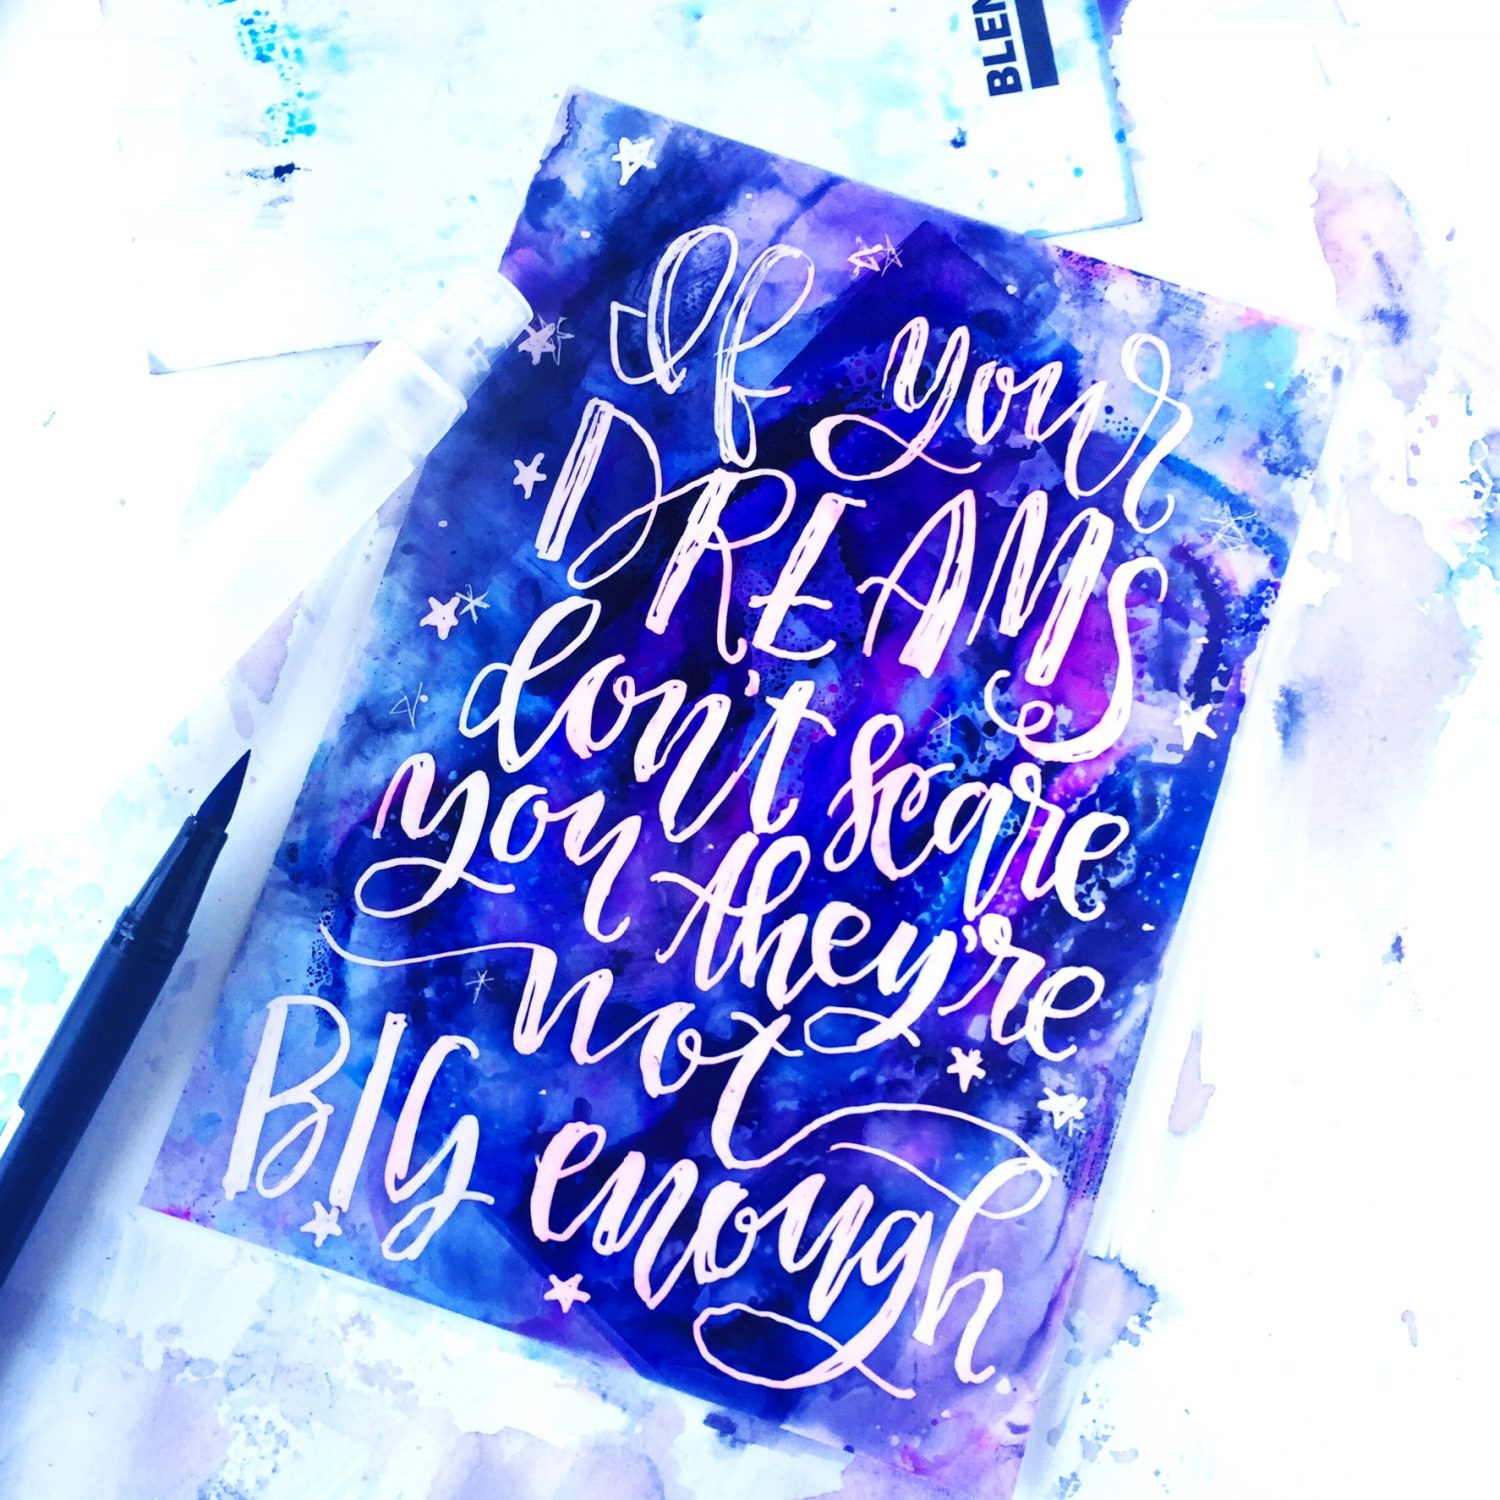 BLEN
If your
DREAMS
don't scare
you they're
not
BIG enough